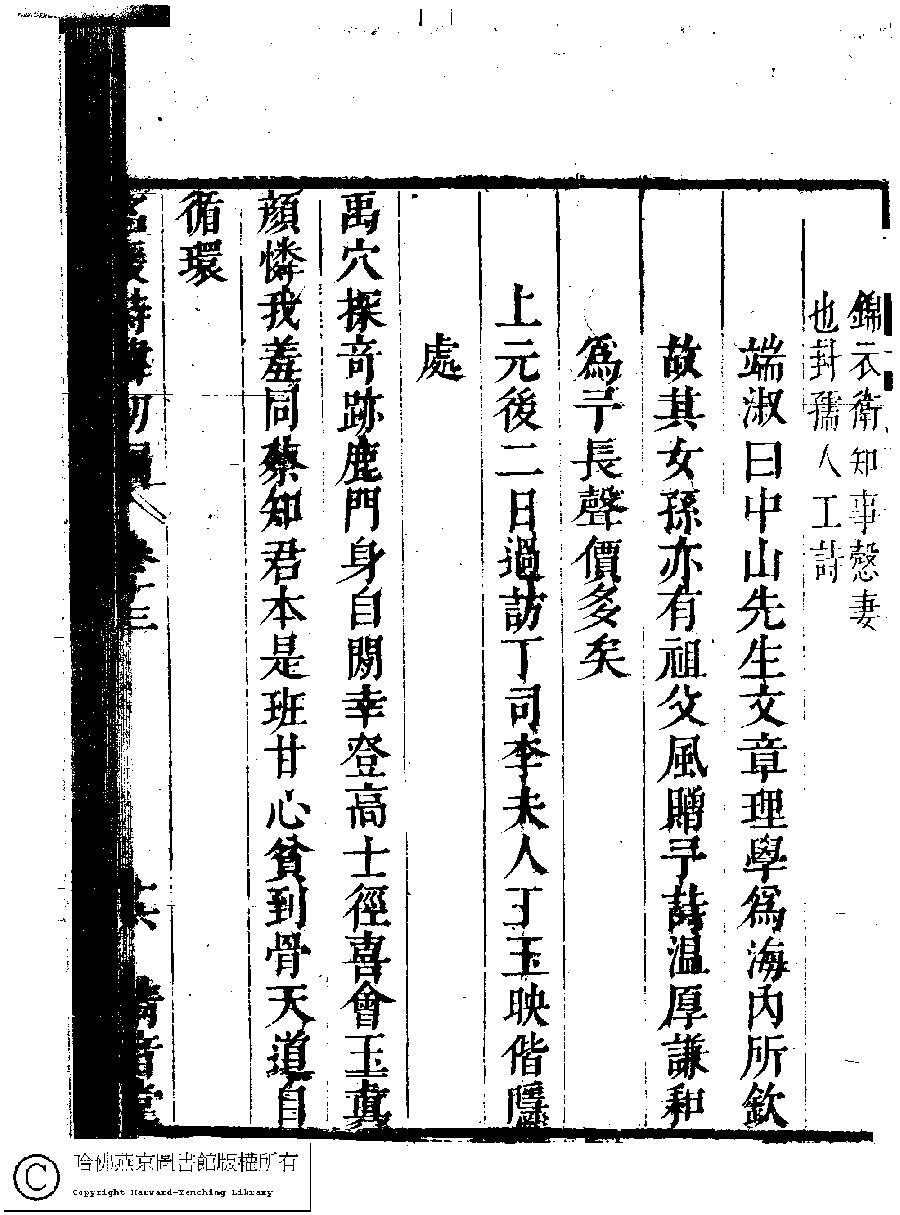 錦衣衛知事慤妻
也封孺人工詩
端淑曰中山先生文章理學爲海內所欽
故其女孫亦有祖父風贈予詩温厚謙和
爲予長聲價多矣
上元後二日過訪丁司李夫人丁玉映偕隱
處
禹穴探奇跡鹿門身自閒幸登高士徑喜會玉真
顔憐我羞同蔡知君本是班甘心貧到骨天道自
循環
名媛詩緯初編 卷十三 清音堂
哈佛燕京圖書館版權所有
Copyright Harvard-Yenching Library